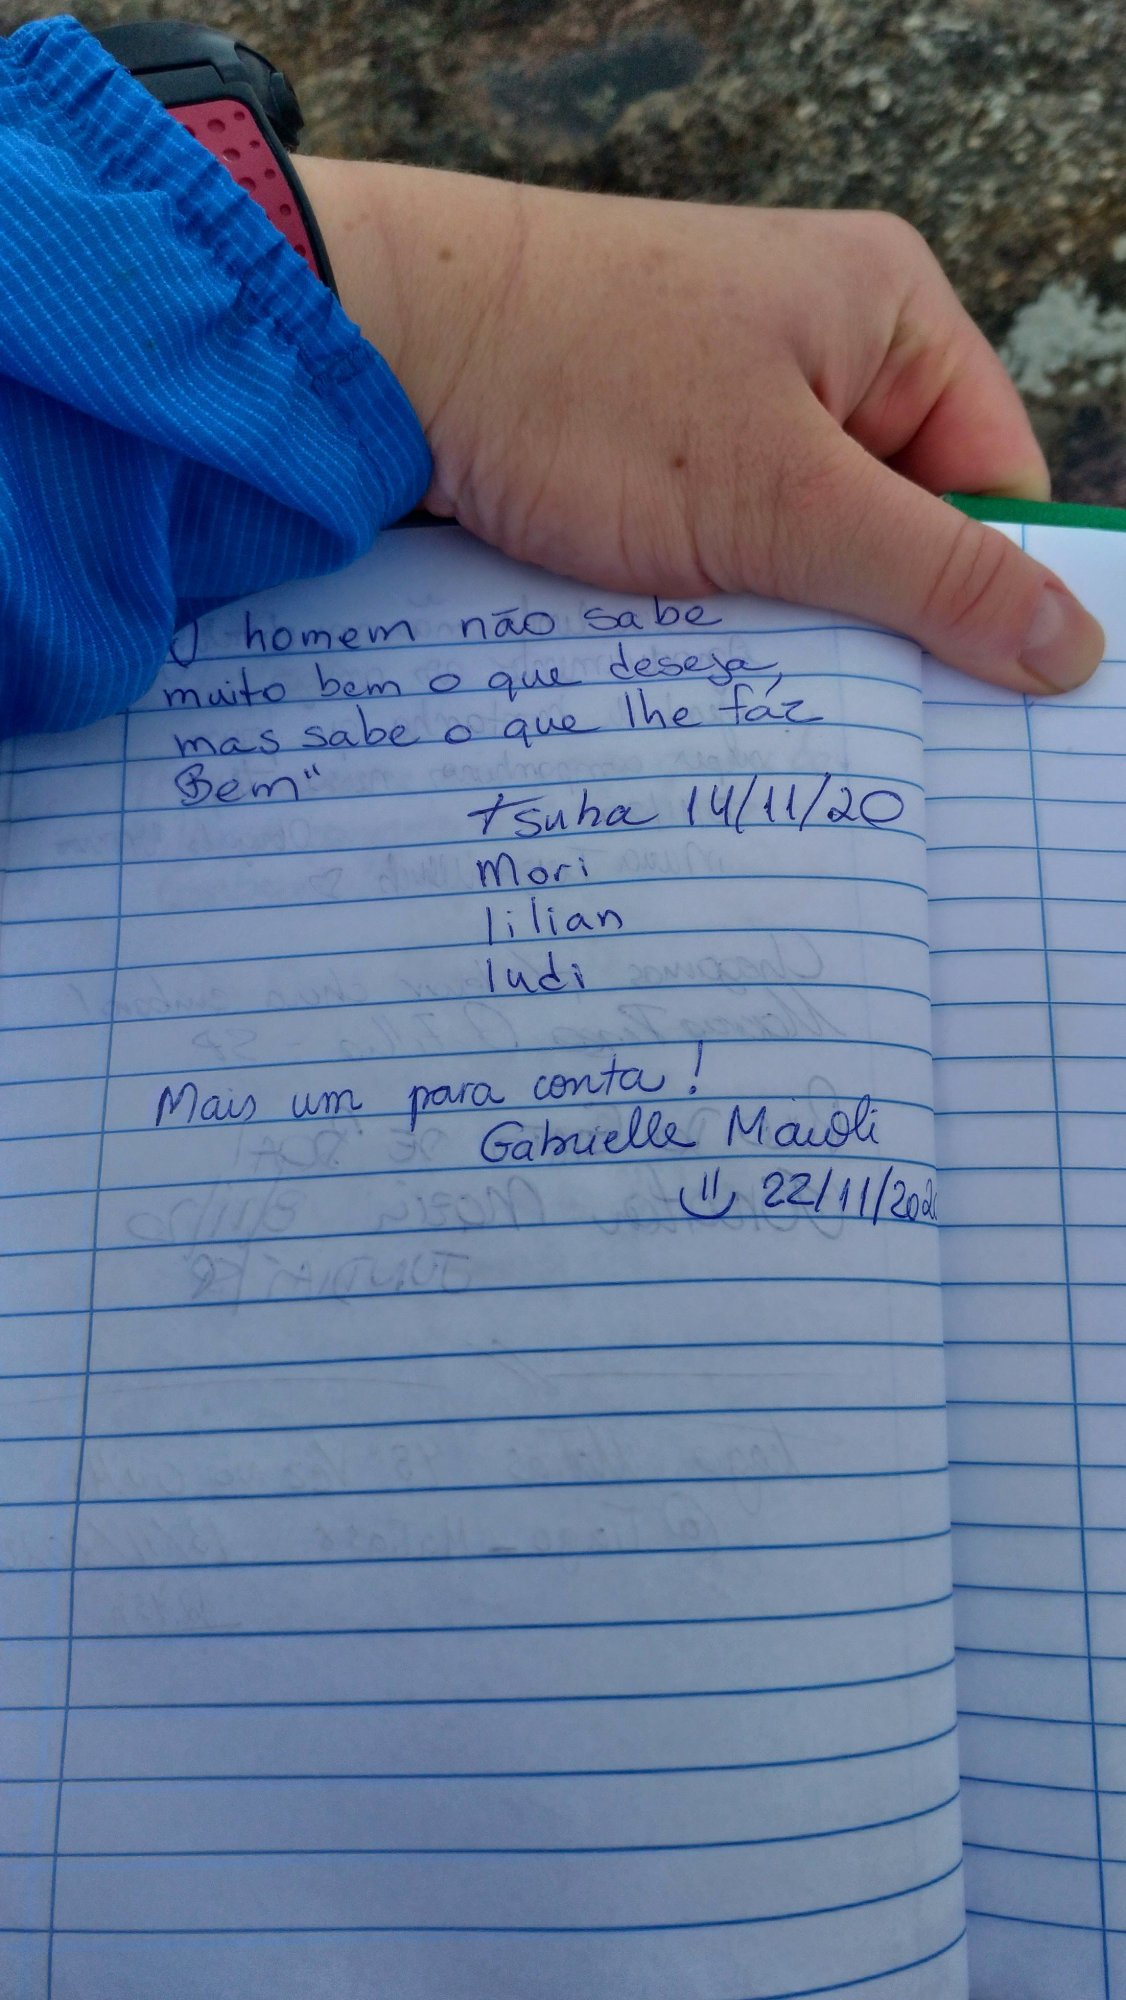 O homem não sabe
muito bem o que deseja,
mas sabe o que lhe fáz
Bem"
Tsuha 14/11/20
Mori
lilian
ludi
Mais um para conta!
Gabrielle Maioli
22/11/2020